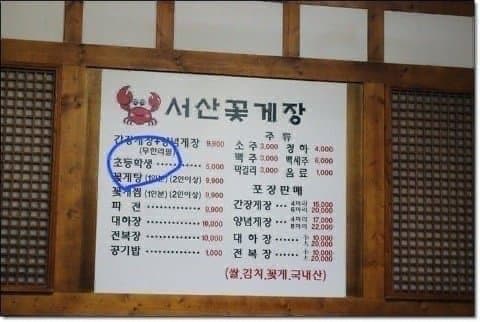 서산꽃게장
간장게장+양념게장 9,900
(무한리필)
초등학생 ·········· 5,000
꽃게탕 (1인분) (2인이상) 9,900
꽃게찜 (1인분) (2인이상) 9,900
파 전 ·············· 8,000
대하장 ·············· 10,000
전복장 ·············· 10,000
공기밥 ·············· 1,000
주 류
소 주 3,000 청 하 4,000
맥 주 3,000 백세주 6,000
막걸리 3,000 음 료 1,000
포 장 판 매
간장게장 ···· 4마리 15,000
6마리 20,000
양념게장 ···· 4마리 17,000
6마리 22,000
대 하 장 ········ 20,000
전 복 장 ········ 20,000
(쌀,김치,꽃게,국내산)